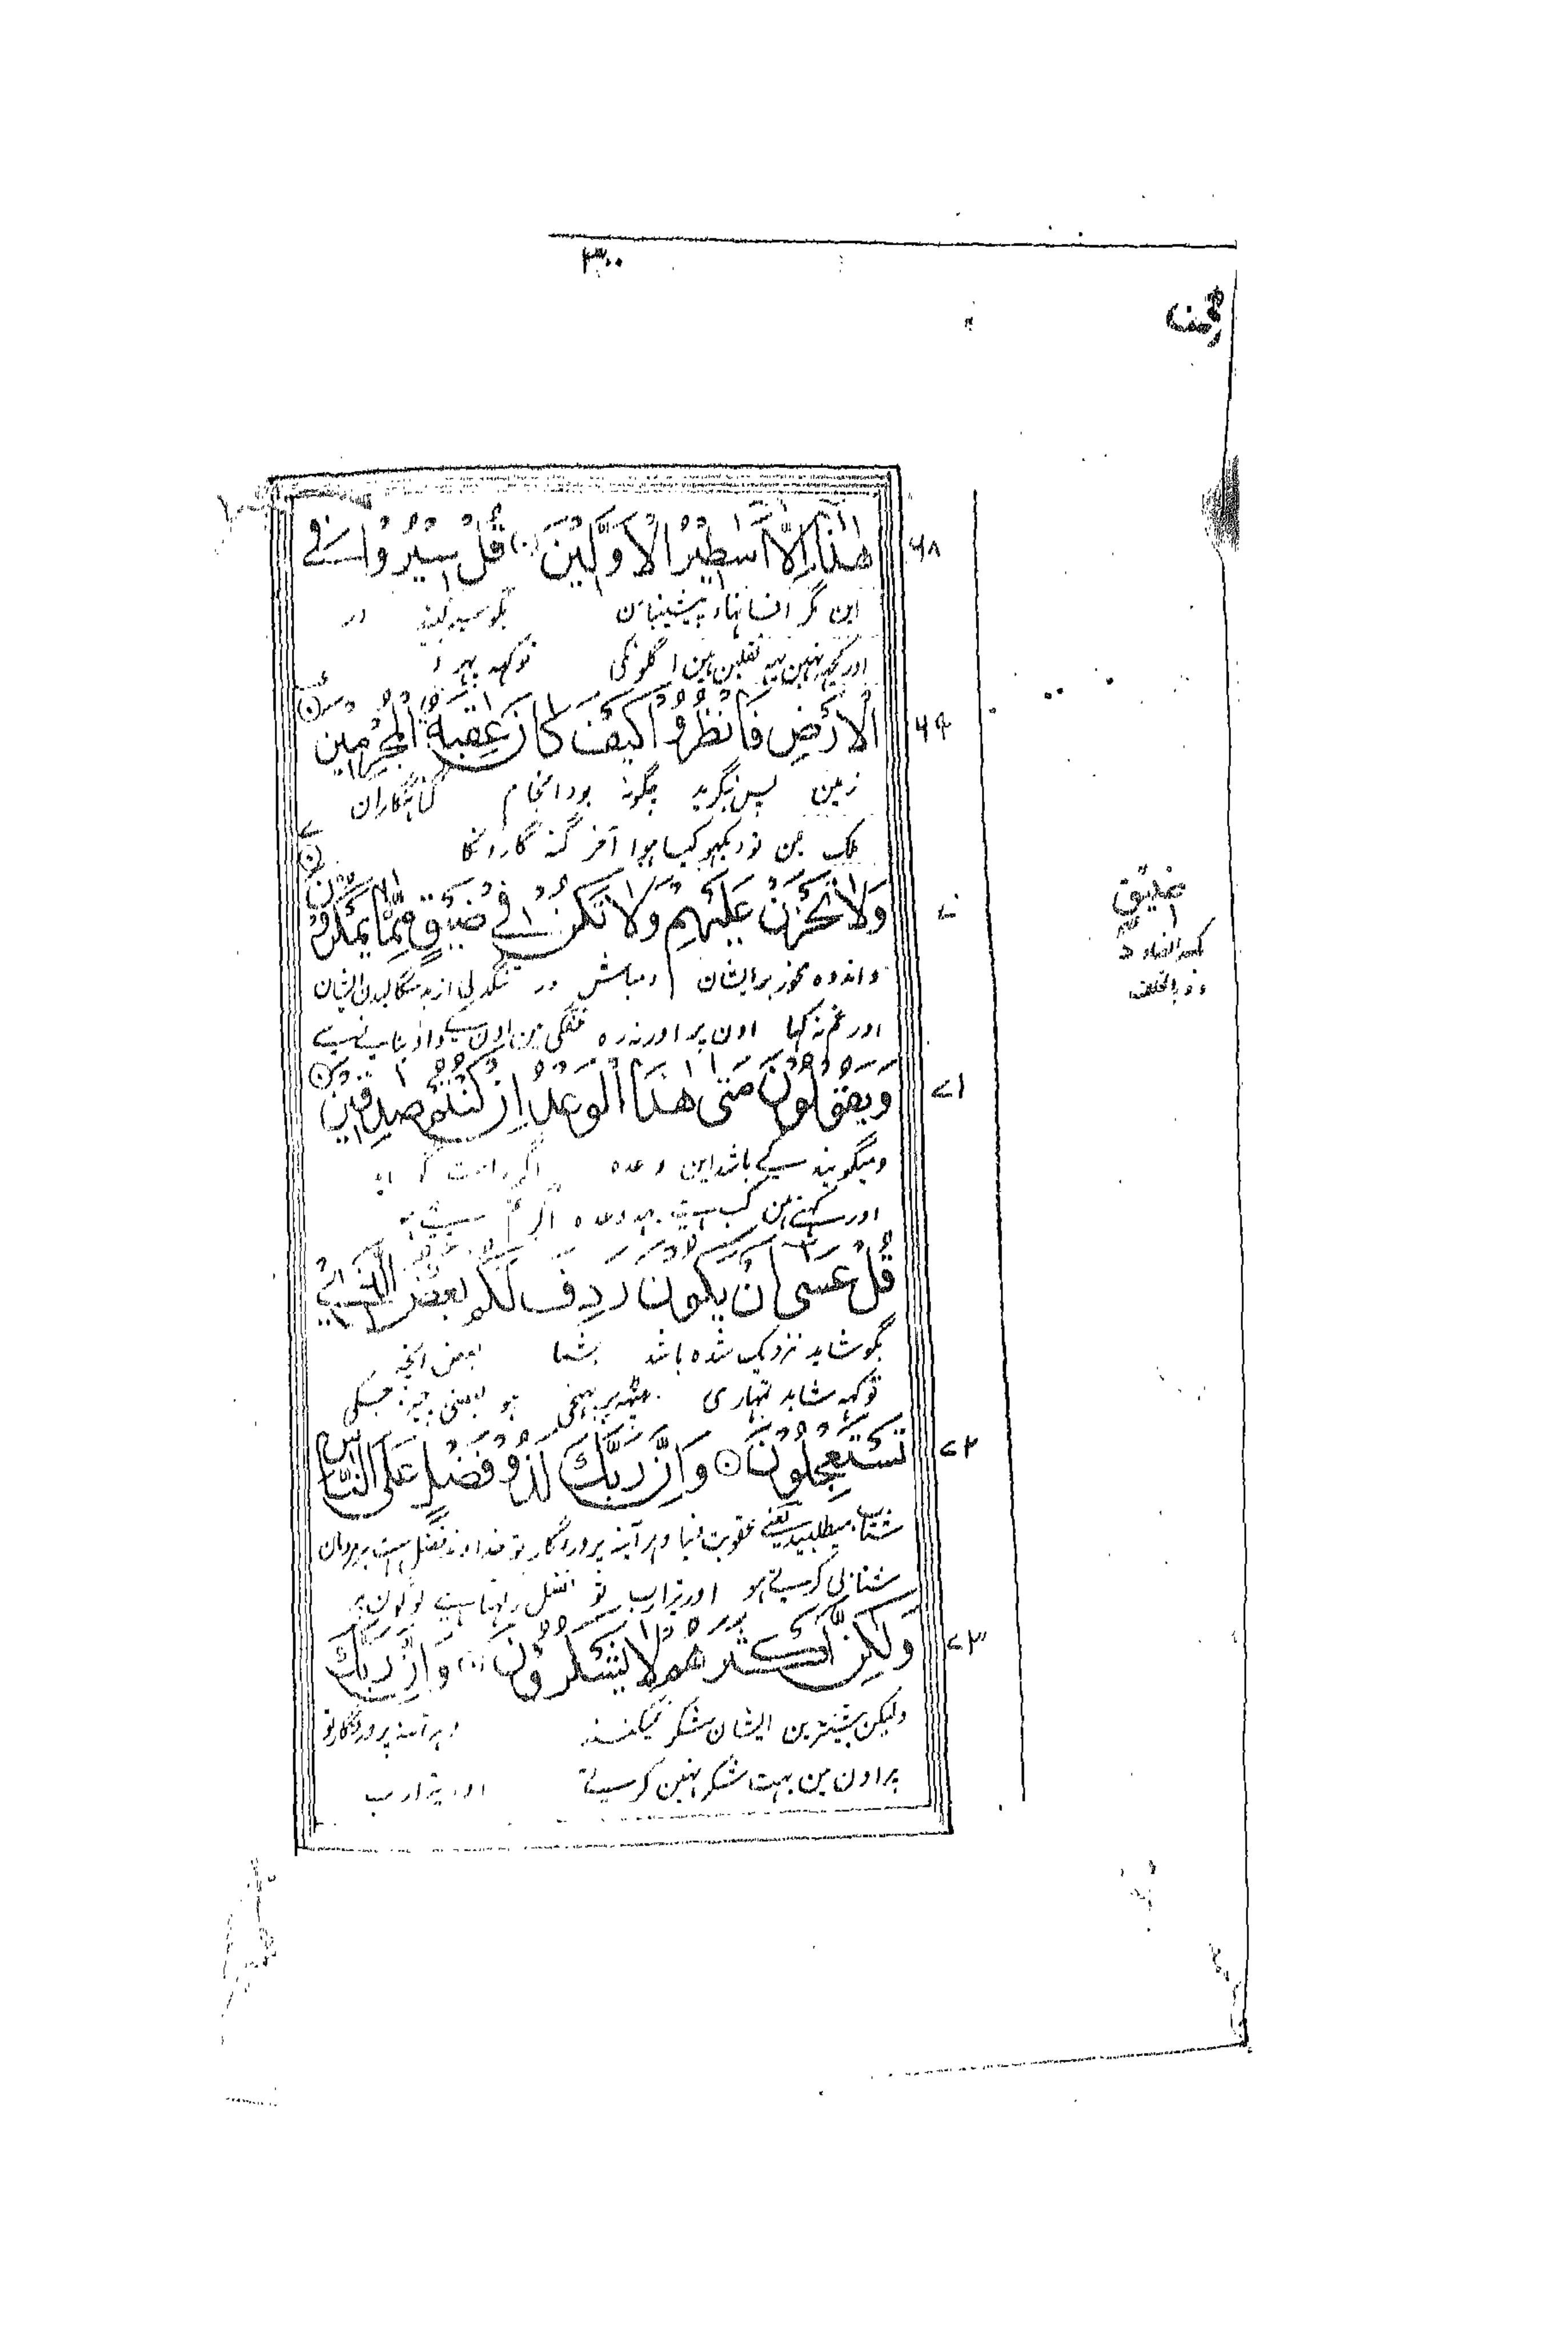 ۳۰۰
هٰذَا اِلَّا اَسَاطِيْرُ الْاَوَّلِيْنَ قُلْ سِيْرُوْا فِے
۶۸
این مگر افسانهاء پیشینیان بگو سیر کنید در
اور کچھہ نہین یہہ نقلین ہین اگلونکی توکہہ پہرو
الْاَرْضِ فَانْظُرُوْا كَيْفَ كَانَ عٰقِبَةُ الْمُجْرِمِيْنَ
۶۹
زمین پس بنگرید چگونه بود انجام گناهگاران
ملک مین تو دیکہو کیسا ہوا آخر گنہ گارونکا
وَلَا تَحْزَنْ عَلَيْهِمْ وَلَا تَكُنْ فِيْ ضَيْقٍ مِّمَّا يَمْكُرُوْنَ
۷۰
ضَيْقٍ
واندوه مخور بر ایشان و مباش در تنگدلی از بدسگالیدن ایشان
اور غم نہ کہا اون پر اور نہ رہ خفگی مین اون کے داؤ بنانے سے
وَيَقُوْلُوْنَ مَتٰى هٰذَا الْوَعْدُ اِنْ كُنْتُمْ صٰدِقِيْنَ
۷۱
ومیگویند کے باشد این وعده اگر راست گو اید
اور کہتے ہین کب ہے یہہ وعدہ اگر تم سچے ہو
قُلْ عَسٰى اَنْ يَكُوْنَ رَدِفَ لَكُمْ بَعْضُ الَّذِيْ
بگو شاید نزدیک شده باشد بشما بعض آنچه
توکہہ شاید تمہاری پیٹہہ پر پہنچی ہو بعضی چیز جسکی
تَسْتَعْجِلُوْنَ وَاِنَّ رَبَّكَ لَذُوْ فَضْلٍ عَلَى النَّاسِ
۷۲
شتاب میطلبید یعنے عقوبت دنیا و هر آینه پروردگار تو خداوند فضل است بر مردمان
شتابی کرتے ہو اور تیرا رب تو فضل رکہتا ہے لوگون پر
وَلٰكِنَّ اَكْثَرَهُمْ لَا يَشْكُرُوْنَ وَاِنَّ رَبَّكَ
۷۳
ولیکن بیشترین ایشان شکر نمیکنند و هر آینه پروردگار تو
پر اون مین بہت شکر نہین کرتے اور تیرا رب